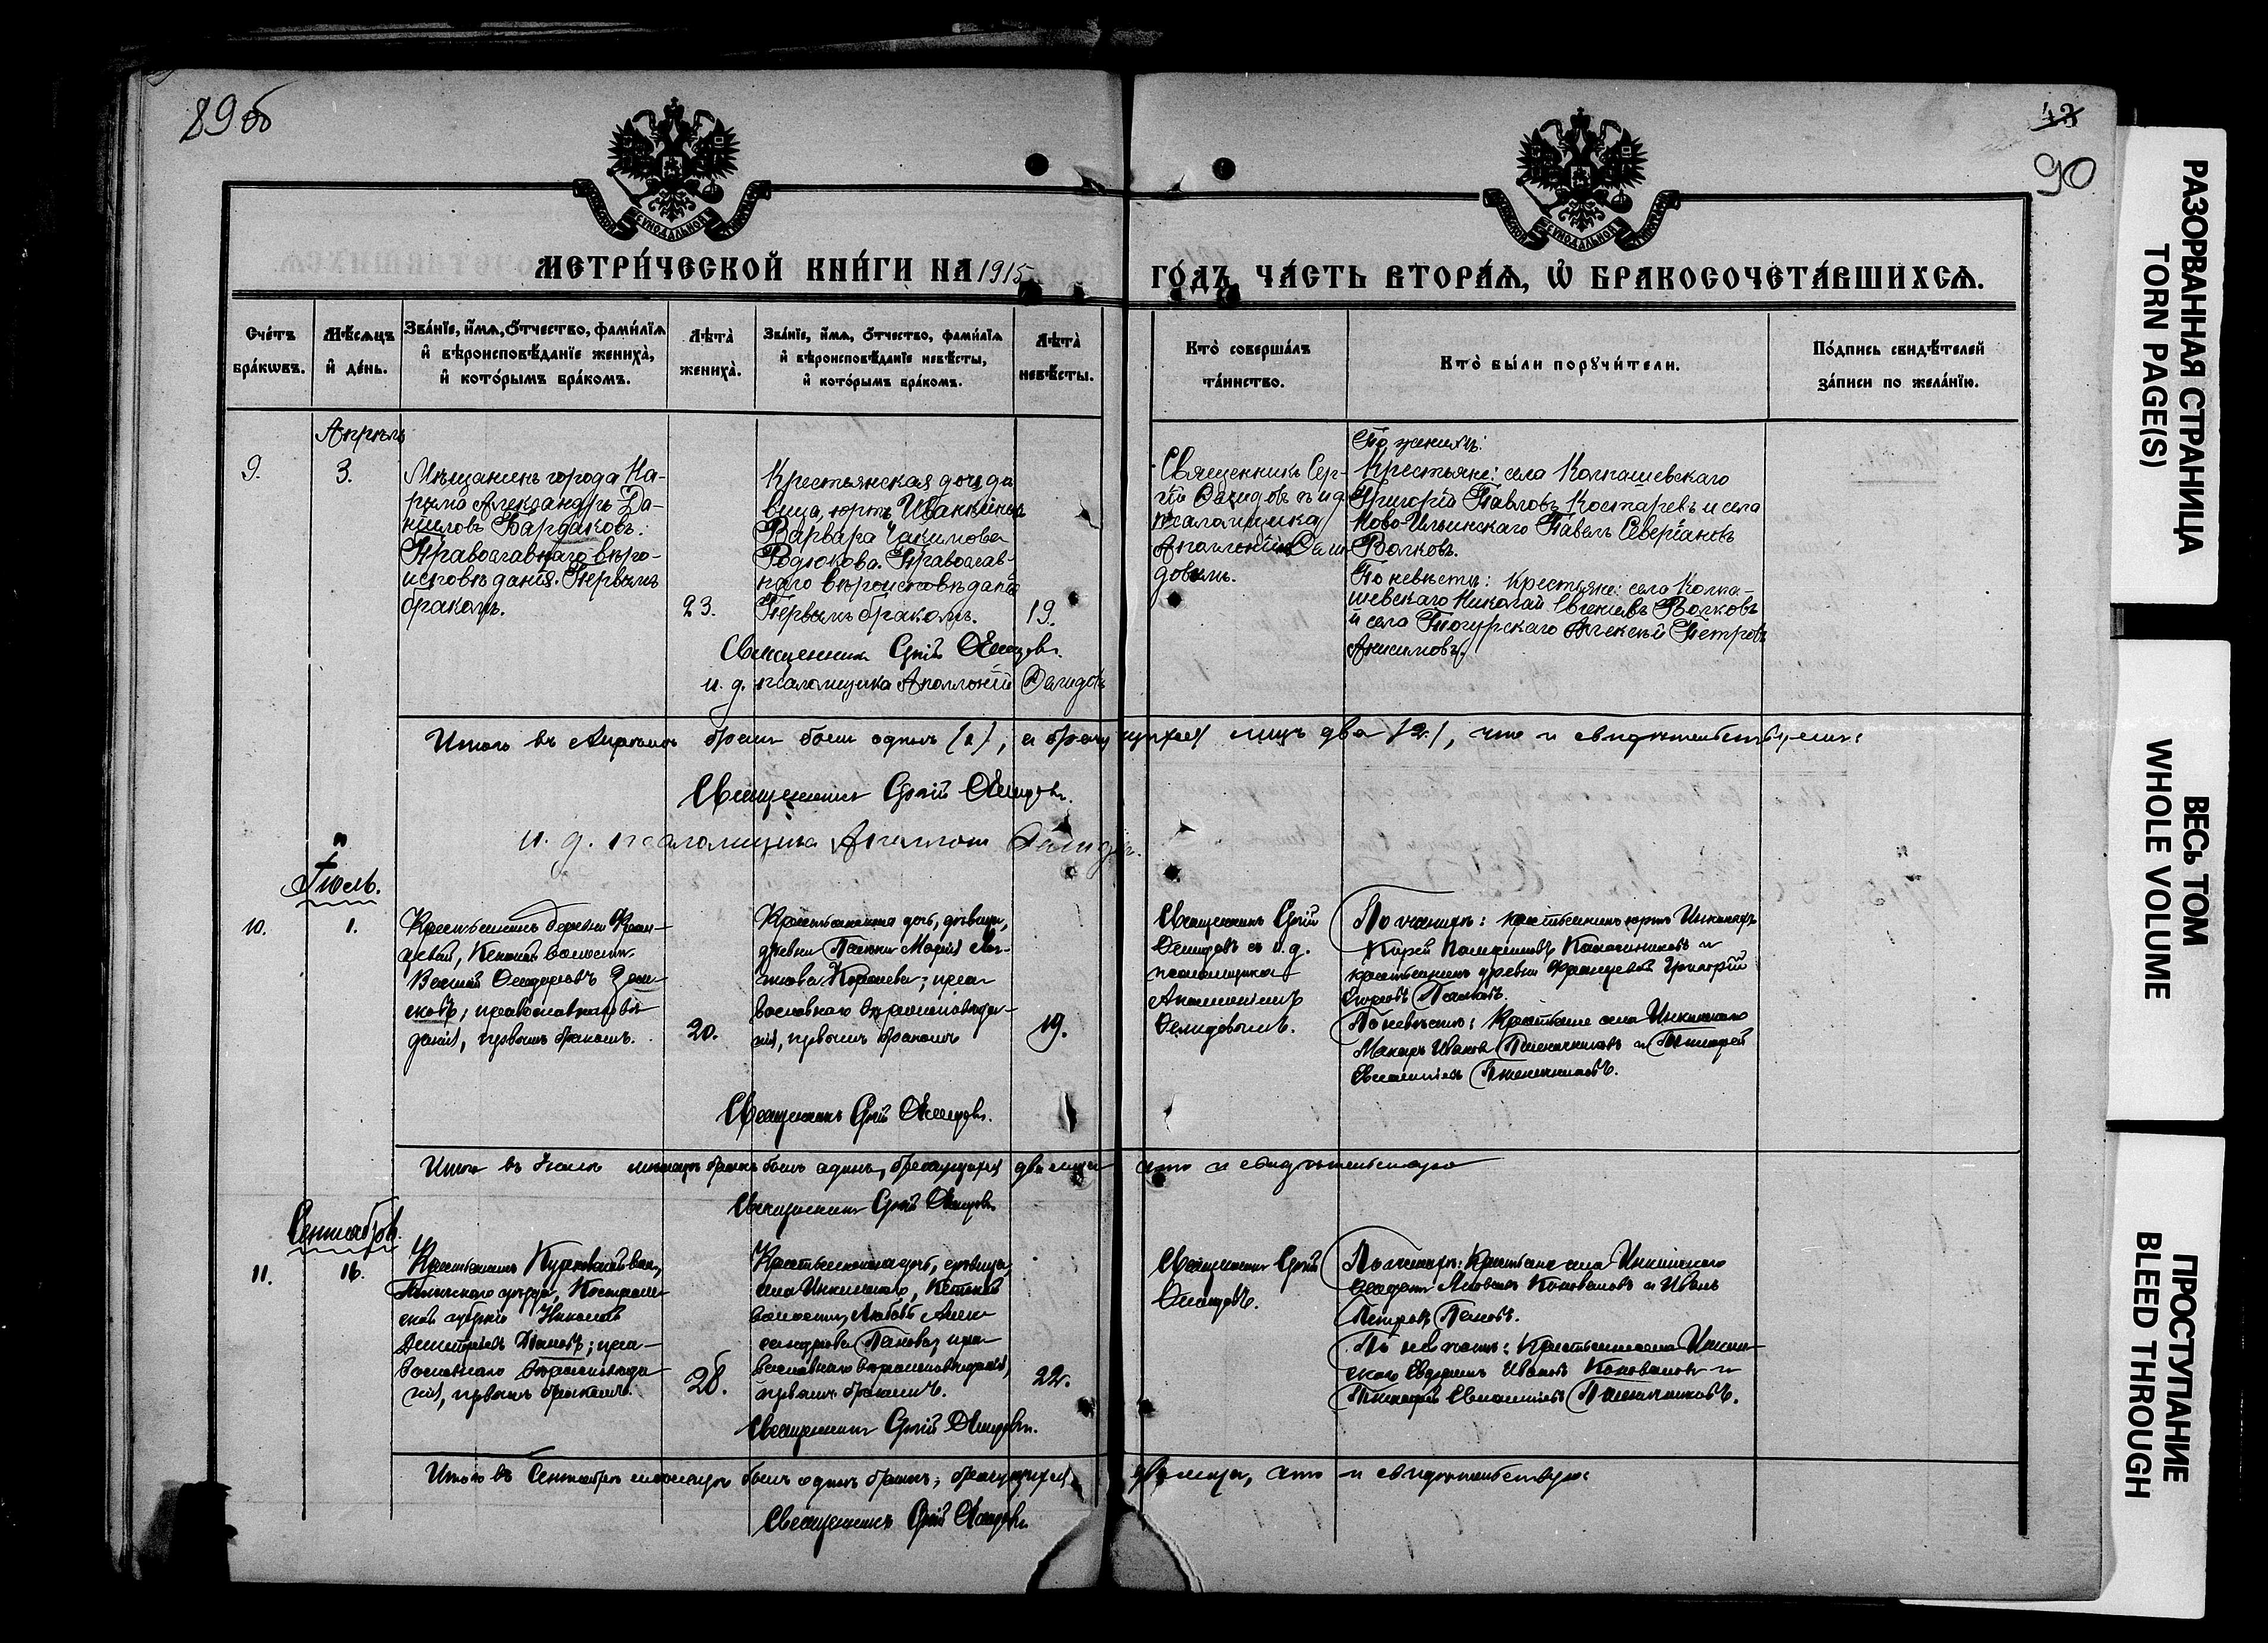 89 об
43
90
МЕТРИ́ЧЕСКОЙ КНИ́ГИ НА 1915
ГО́ДЪ ЧА́СТЬ ВТОРА́Ѧ, Ѡ҆ БРАКОСОЧЕТА́ВШИХСѦ.
Сче́тъ бра́кωвъ.
Мѣ́сѧцъ и҆ де́нь.
Зва́нїе, и҆́мѧ, ѻ҆́тчество, фами́лїѧ
и҆ вѣроисповѣ́данїе жениха̀,
и҆ кото́рымъ бра́комъ.
Лѣ́та жениха̀.
Зва́нїе, и҆́мѧ, ѻ҆́тчество, фами́лїѧ
и҆ вѣроисповѣ́данїе невѣ́сты,
и҆ кото́рымъ бра́комъ.
Лѣ́та невѣ́сты.
Кто̀ соверша́лъ
та́инство.
Кто̀ бы́ли порꙋчи́тели.
По́дпись свидѣ́телей
за́писи по жела́нїю.
Апрѣль
9.
3.
Мѣщанинъ города На-
рыма Александръ Да-
ниловъ Бардаковъ.
Православнаго вѣро-
исповѣданія. Первымъ
бракомъ.
23.
Крестьянская дочь дѣ
вица, юртъ Иванкиныхъ
Варвара
Родюкова. Православ-
наго вѣроисповѣданія
Первымъ бракомъ.
19.
Священникъ Сер-
гій Демидовъ и.д.
псаломщика
Аполлоній Деми-
довымъ.
По женихѣ:
Крестьяне: села Колпашевскаго
Григорій Павловъ Костаревъ и села
Ново-Ильинскаго Павелъ Северіановъ
Волковъ.
По невѣстѣ: Крестьяне: села Колпа-
шевскаго Николай Евгеніевъ Волковъ
и села Тогурскаго Алексѣй Петровъ
Анисимовъ.
Священникъ Сергій Демидовъ.
и. д. псаломщика Аполлоній Демидовъ
Итого въ Апрѣлѣ бракъ былъ одинъ (1), а брачущихся лицъ два (2), что и свидѣтельствуемъ:
Священникъ Сергій Демидовъ.
и. д. псаломщика Аполлон Демидовъ.
Іюль.
10.
1.
Крестьянинъ деревни
Кетской волости
Василій Ѳеодоровъ
православнаго вѣ
данія, первымъ бракомъ.
20.
Крестьянская дочь, дѣвица,
деревни Пасеки Марія
Королева; пра-
вославнаго вѣроисповѣда-
нія, первымъ бракомъ
19.
Священникъ Сергій
Демидовъ съ и.д.
псаломщика
Аполлоніемъ
Демидовымъ.
По женихѣ: крестьянинъ юртъ Инкиныхъ
Колесниковъ и
крестьянинъ деревни Григорій
Егоровъ
По невѣстѣ: Крестьяне села Инкинскаго
Макаръ Ивановъ Пшеничниковъ и
Пшеничниковъ.
Священникъ Сергій Демидовъ.
Итого въ Іюлѣ мѣсяцѣ бракъ былъ одинъ, брачущихся два лица что и свидѣтельствую
Священникъ Сергій Демидовъ
Сентябрь.
11.
16.
Крестьянинъ вол.,
уѣзда, Костром-
ской губерніи Николай
Дмитріевъ пра-
вославнаго вѣроисповѣда
нія, первымъ бракомъ.
28.
Крестьянская дочь, дѣвица,
села Инкинскаго, Кетской
волости, Любовь Алек-
сандрова Панова, пра-
вославнаго вѣроисповѣданія,
первымъ бракомъ.
22.
Священникъ Сергій
Демидовъ.
По женихѣ: Крестьяне села Инкинскаго
Коноваловъ и Иванъ
Петровъ Пановъ.
По невѣстѣ: Крестьяне села Инкин-
скаго Ивановъ Коноваловъ и
Пшеничниковъ.
Священникъ Сергій Демидовъ.
Итого въ Сентябрѣ мѣсяцѣ былъ одинъ бракъ, брачущихся два лица, что и свидѣтельствую:
Священникъ Сергій Демидовъ
РАЗОРВАННАЯ СТРАНИЦА
TORN PAGE(S)
ВЕСЬ ТОМ
WHOLE VOLUME
ПРОСТУПАНИЕ
BLEED THROUGH